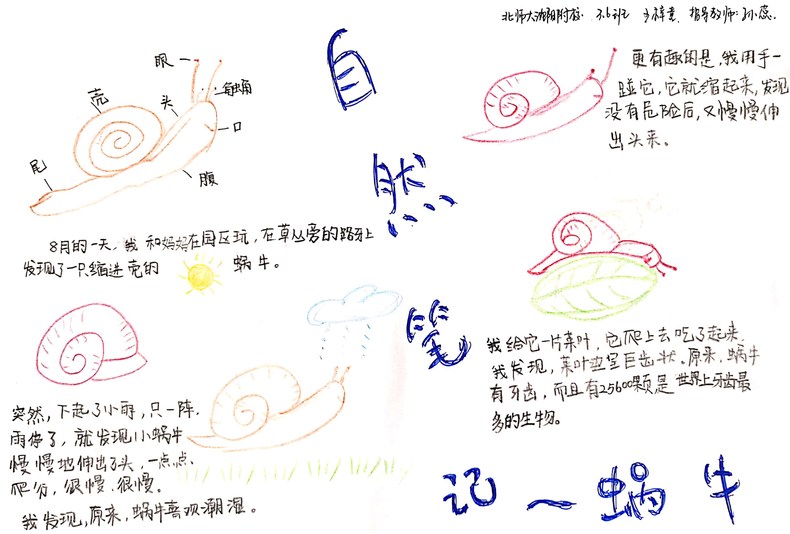 北师大湖明附校 3.6班 指导教师:孙蕊
自
然
笔
记 ～ 蜗 牛
眼
触角
壳
头
口
尾
腹
8月的一天,我和妈妈在园区玩,在草丛旁的路牙上
发现了一只缩进壳的 蜗牛。
突然,下起了小雨,只一阵.
雨停了,就发现小蜗牛
慢慢地伸出了头,一点点.
爬行,很慢.很慢。
我发现,原来,蜗牛喜欢潮湿。
更有趣的是,我用手一
碰它,它就缩起来,发现
没有危险后,又慢慢伸
出头来。
我给它一片菜叶,它爬上去吃了起来.
我发现,菜叶边呈巨齿状.原来,蜗牛
有牙齿,而且有25600颗是世界上牙齿最
多的生物。